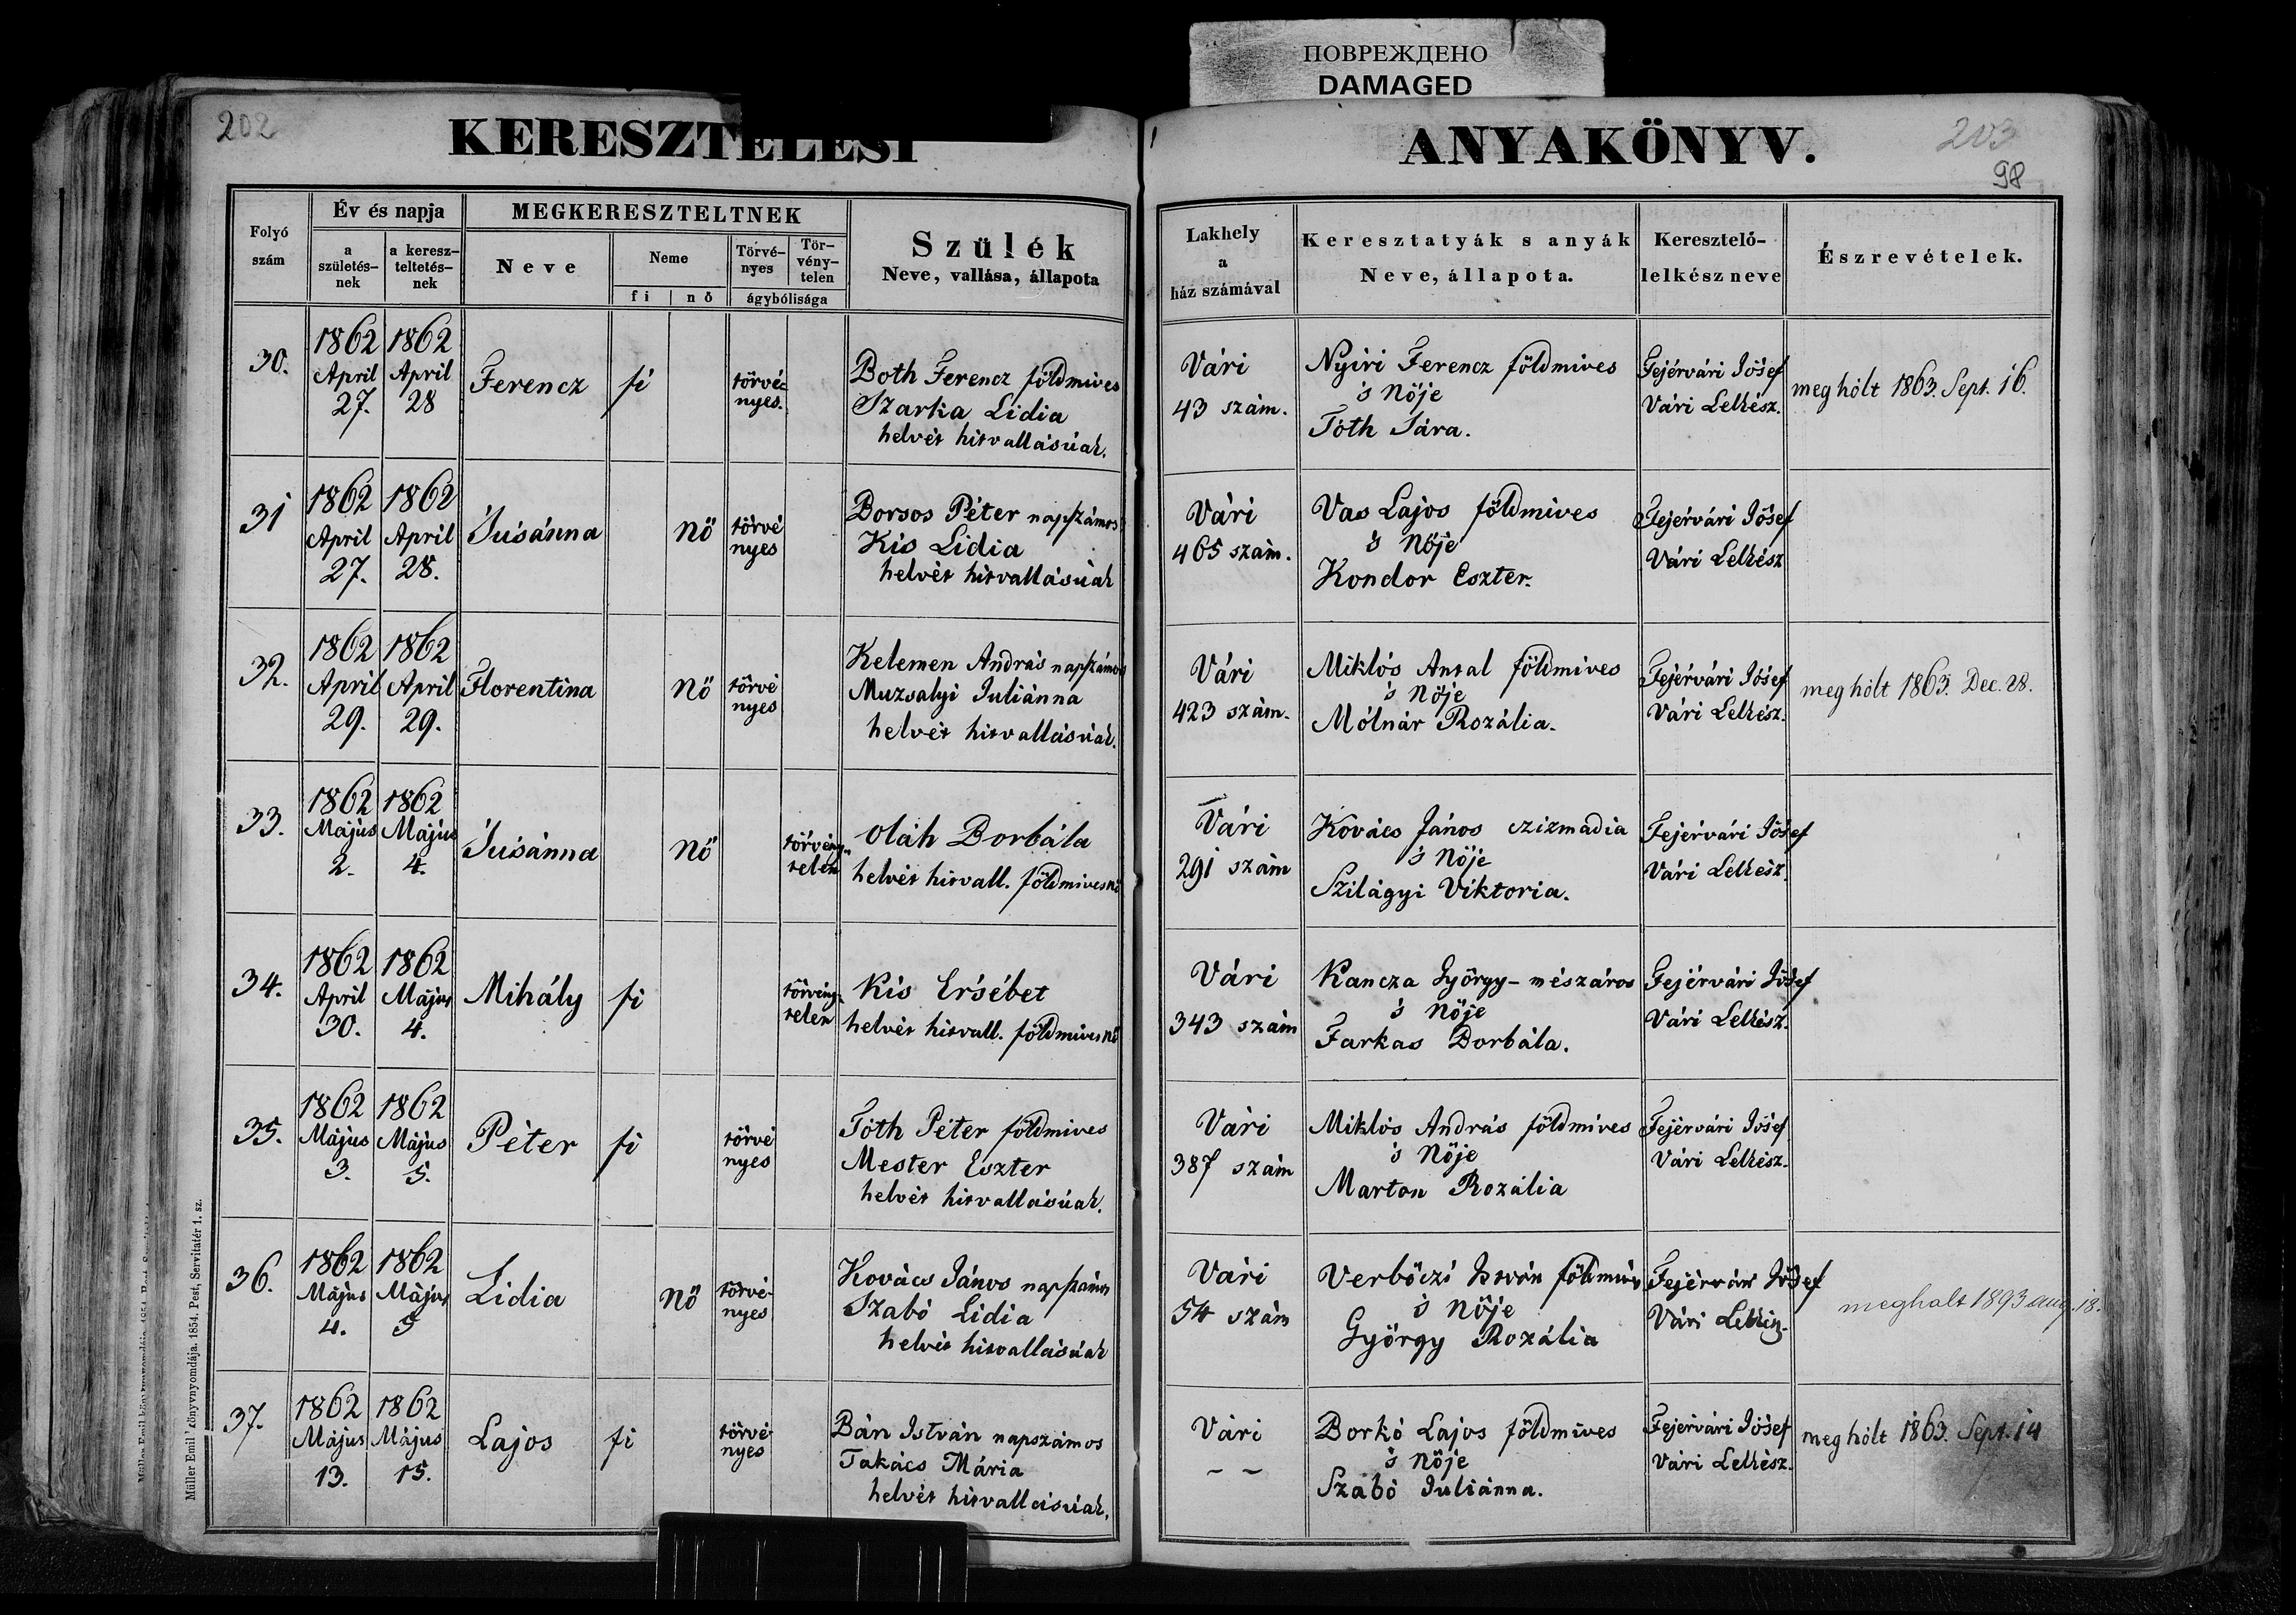 ПОВРЕЖДЕНО
DAMAGED
202
KERESZTELÉSI
ANYAKÖNYV.
203
98
Folyó szám
Év és napja
a születés-nek
a keresz-teltetés-nek
MEGKERESZTELTNEK
Neve
Neme
fi
nő
Törvé-nyes
Tör-vény-telen
ágybólisága
Szülék
Neve, vallása, állapota
Lakhely
a
ház számával
Keresztatyák s anyák
Neve, állapota.
Keresztelő-
lelkész neve
Észrevételek.
30.
1862 April 27.
1862 April 28
Ferencz
fi
törvé-nyes.
Both Ferencz földmives
Szarka Lidia
helvét hitvallásúak.
Vári
43 szám.
Nyiri Ferencz földmives
's Nöje
Tóth Sára.
Fejérvári Jósef
Vári Lelkész.
meg hólt 1863. Sept. 16.
31
1862 April 27.
1862 April 28.
Susánna
nő
törvé nyes
Borsos Péter napszámos
Kis Lidia
helvét hitvallásúak
Vári
465 szám.
Vas Lajos földmives
's Nöje
Kondor Eszter.
Fejérvári Jósef
Vári Lelkész
32.
1862 April 29.
1862 April 29.
Florentina
Nő
törvé nyes
Kelemen András napszámos
Muzsalyi Juliánna
helvét hitvallásúak.
Vári
423 szám.
Miklós Antal földmives
's Nöje
Mólnár Rozália.
Fejérvári Jósef
Vári Lelkész.
meg hólt 1863. Dec. 28.
33.
1862 Május 2.
1862 Május 4.
Susánna
Nő
törvény-telen
Oláh Borbála
helvét hitvall. földmivesnő
Vári
291 szám
Kovács János czizmadia
's Nöje
Szilágyi Viktoria.
Fejérvári Jósef
Vári Lelkész.
34.
1862 April 30.
1862 Május 4.
Mihály
fi
törvény-telen
Kis Ersébet
helvét hitvall. földmivesnő
Vári
343 szám
Kancza György-mészáros
's Nöje
Farkas Borbála.
Fejérvári Jósef
Vári Lelkész.
35.
1862 Május 3.
1862 Május 5.
Péter
fi
törvé nyes
Tóth Péter földmives
Mester Eszter
helvét hitvallásúak.
Vári
387 szám
Miklós András földmives
's Nöje
Marton Rozália
Fejérvári Jósef
Vári Lelkész.
36.
1862 Május 4.
1862 Május 5
Lidia
Nő
törvé-nyes
Kovács János napszámos
Szabó Lidia
helvét hitvallásúak
Vári
54 szám
Verböczi István földmives
's Nöje
György Rozália
Fejérvári Jósef
Vári Lelkész.
meghalt 1893 aug. 18.
37.
1862 Május 13.
1862 Május 15.
Lajos
fi
törvé-nyes
Bán István napszámos
Takács Mária
helvét hitvallásúak.
Vári
– –
Borkó Lajos földmives
's Nöje
Szabó Juliánna.
Fejérvári Jósef
Vári Lelkész.
meg hólt 1863. Sept. 14
Müller Emil könyvnyomdája. 1854. Pest, Servitatér 1. sz.